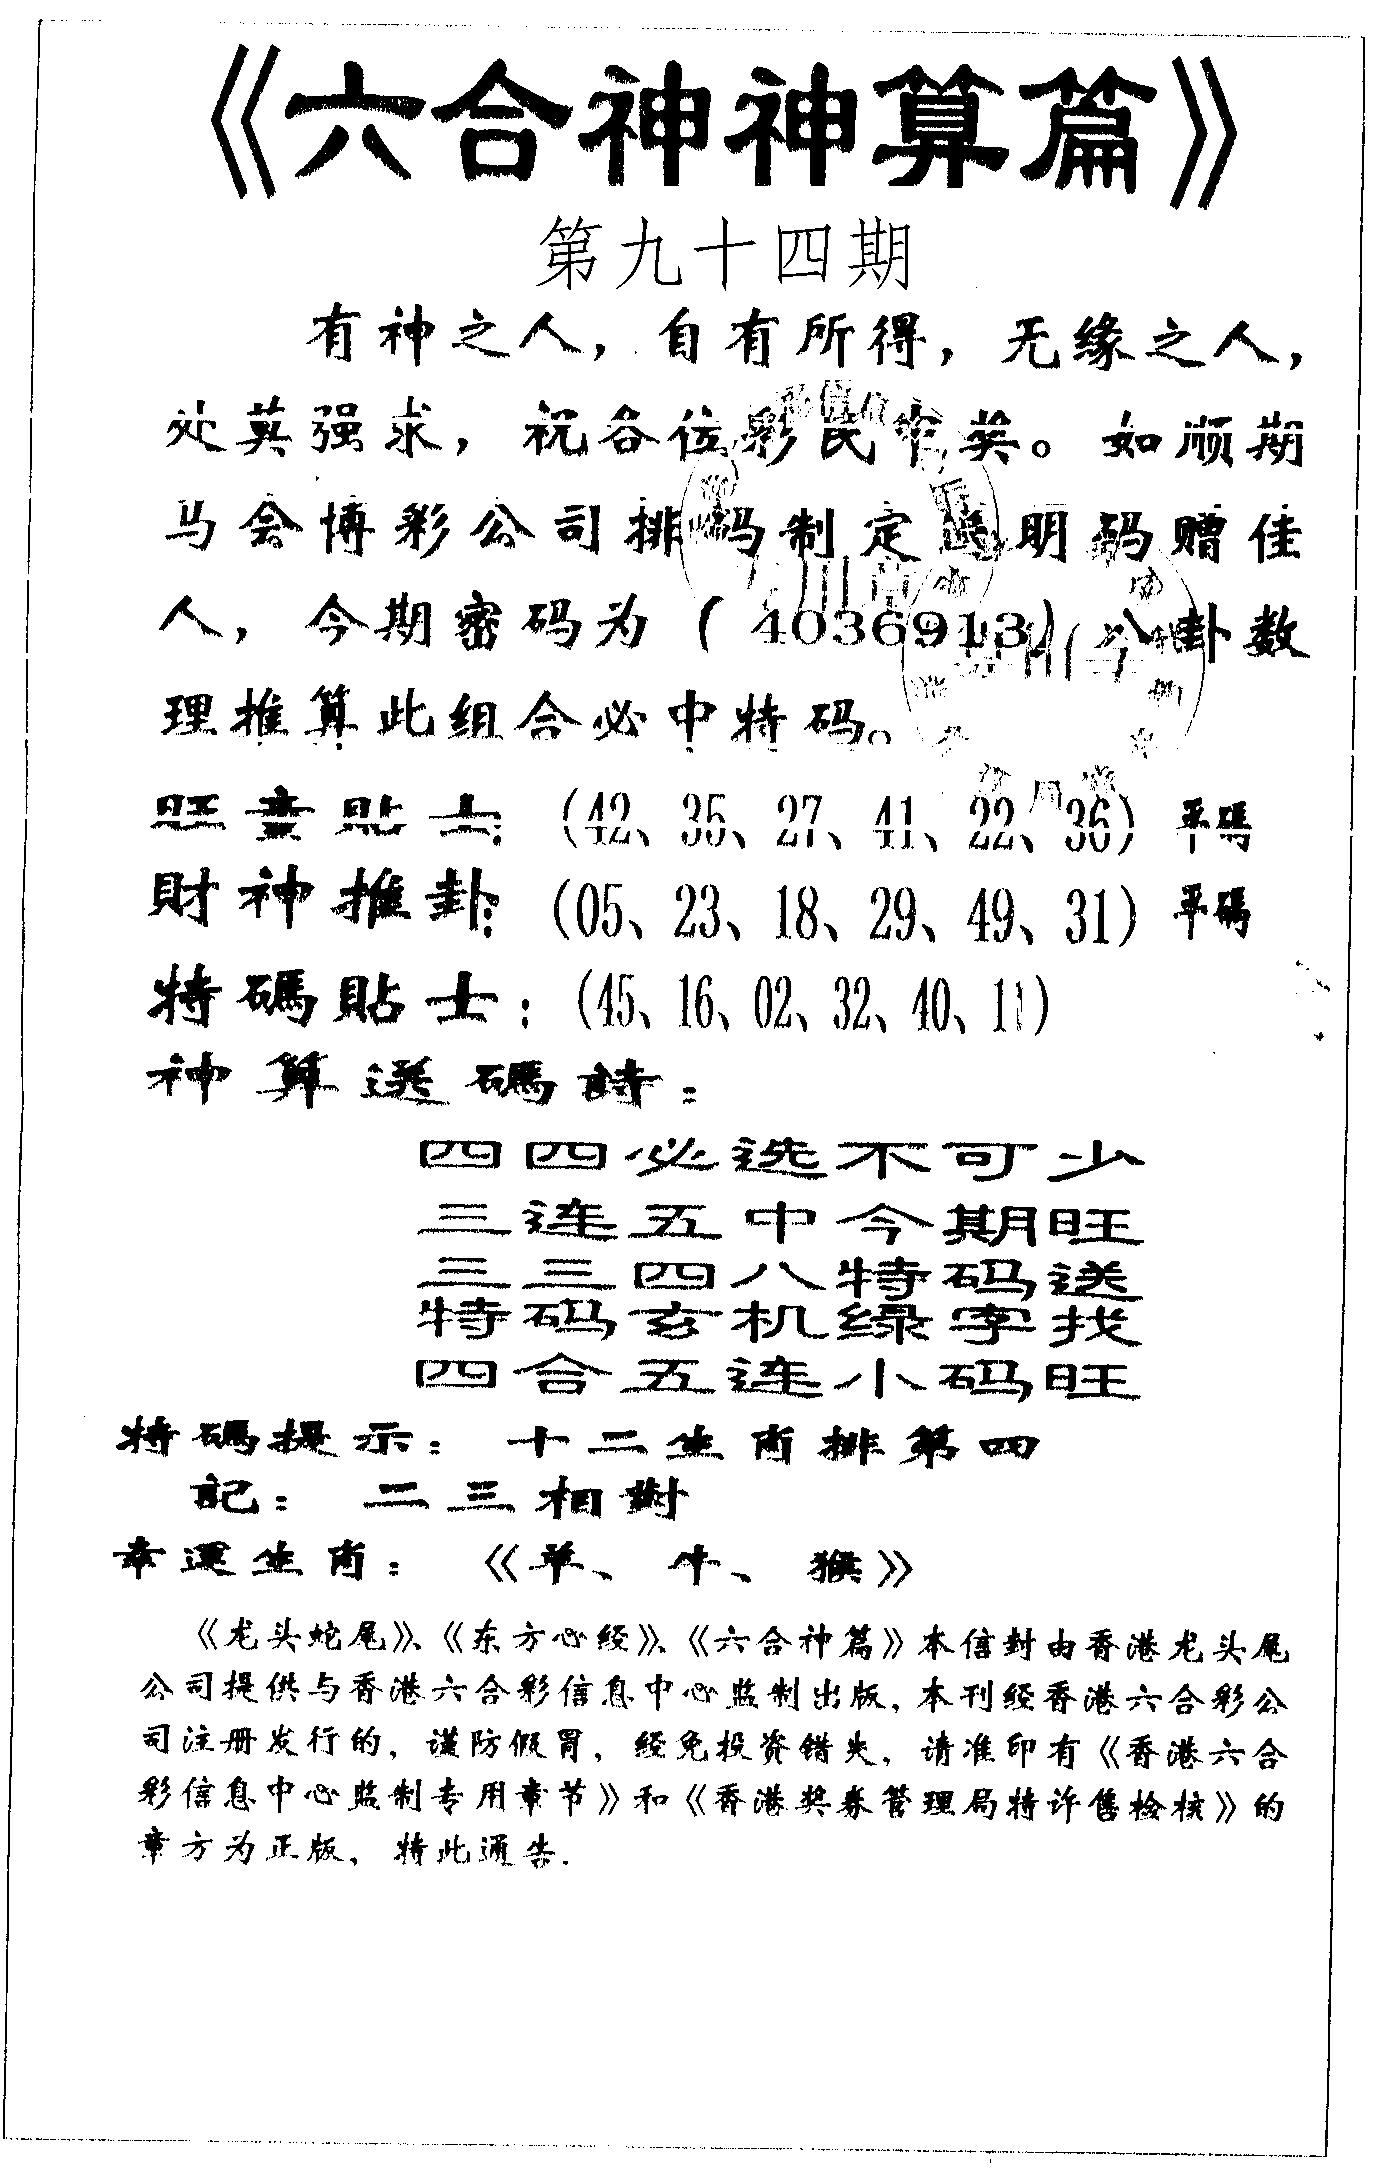 《六合神神算篇》
第九十四期
有神之人，自有所得，无缘之人，
处莫强求，祝各位彩民中奖。如顺期
马会博彩公司排码制定透明码赠佳
人，今期密码为（4036913）八卦数
理推算此组合必中特码。
旺童貼士：（42、35、27、41、22、36）平碼
財神推卦：（05、23、18、29、49、31）平碼
特碼貼士：（45、16、02、32、40、11）
神算选碼詩：
四四必选不可少
三连五中今期旺
三三四八特码送
特码玄机绿字找
四合五连小码旺
特碼提示：十二生肖排第四
記：二三相對
幸運生肖：《羊、牛、猴》
《龙头蛇尾》、《东方心经》、《六合神篇》本信封由香港龙头尾
公司提供与香港六合彩信息中心监制出版，本刊经香港六合彩公
司注册发行的，谨防假冒，经免投资错失，请准印有《香港六合
彩信息中心监制专用章节》和《香港奖券管理局特许售检核》的
章方为正版，特此通告.